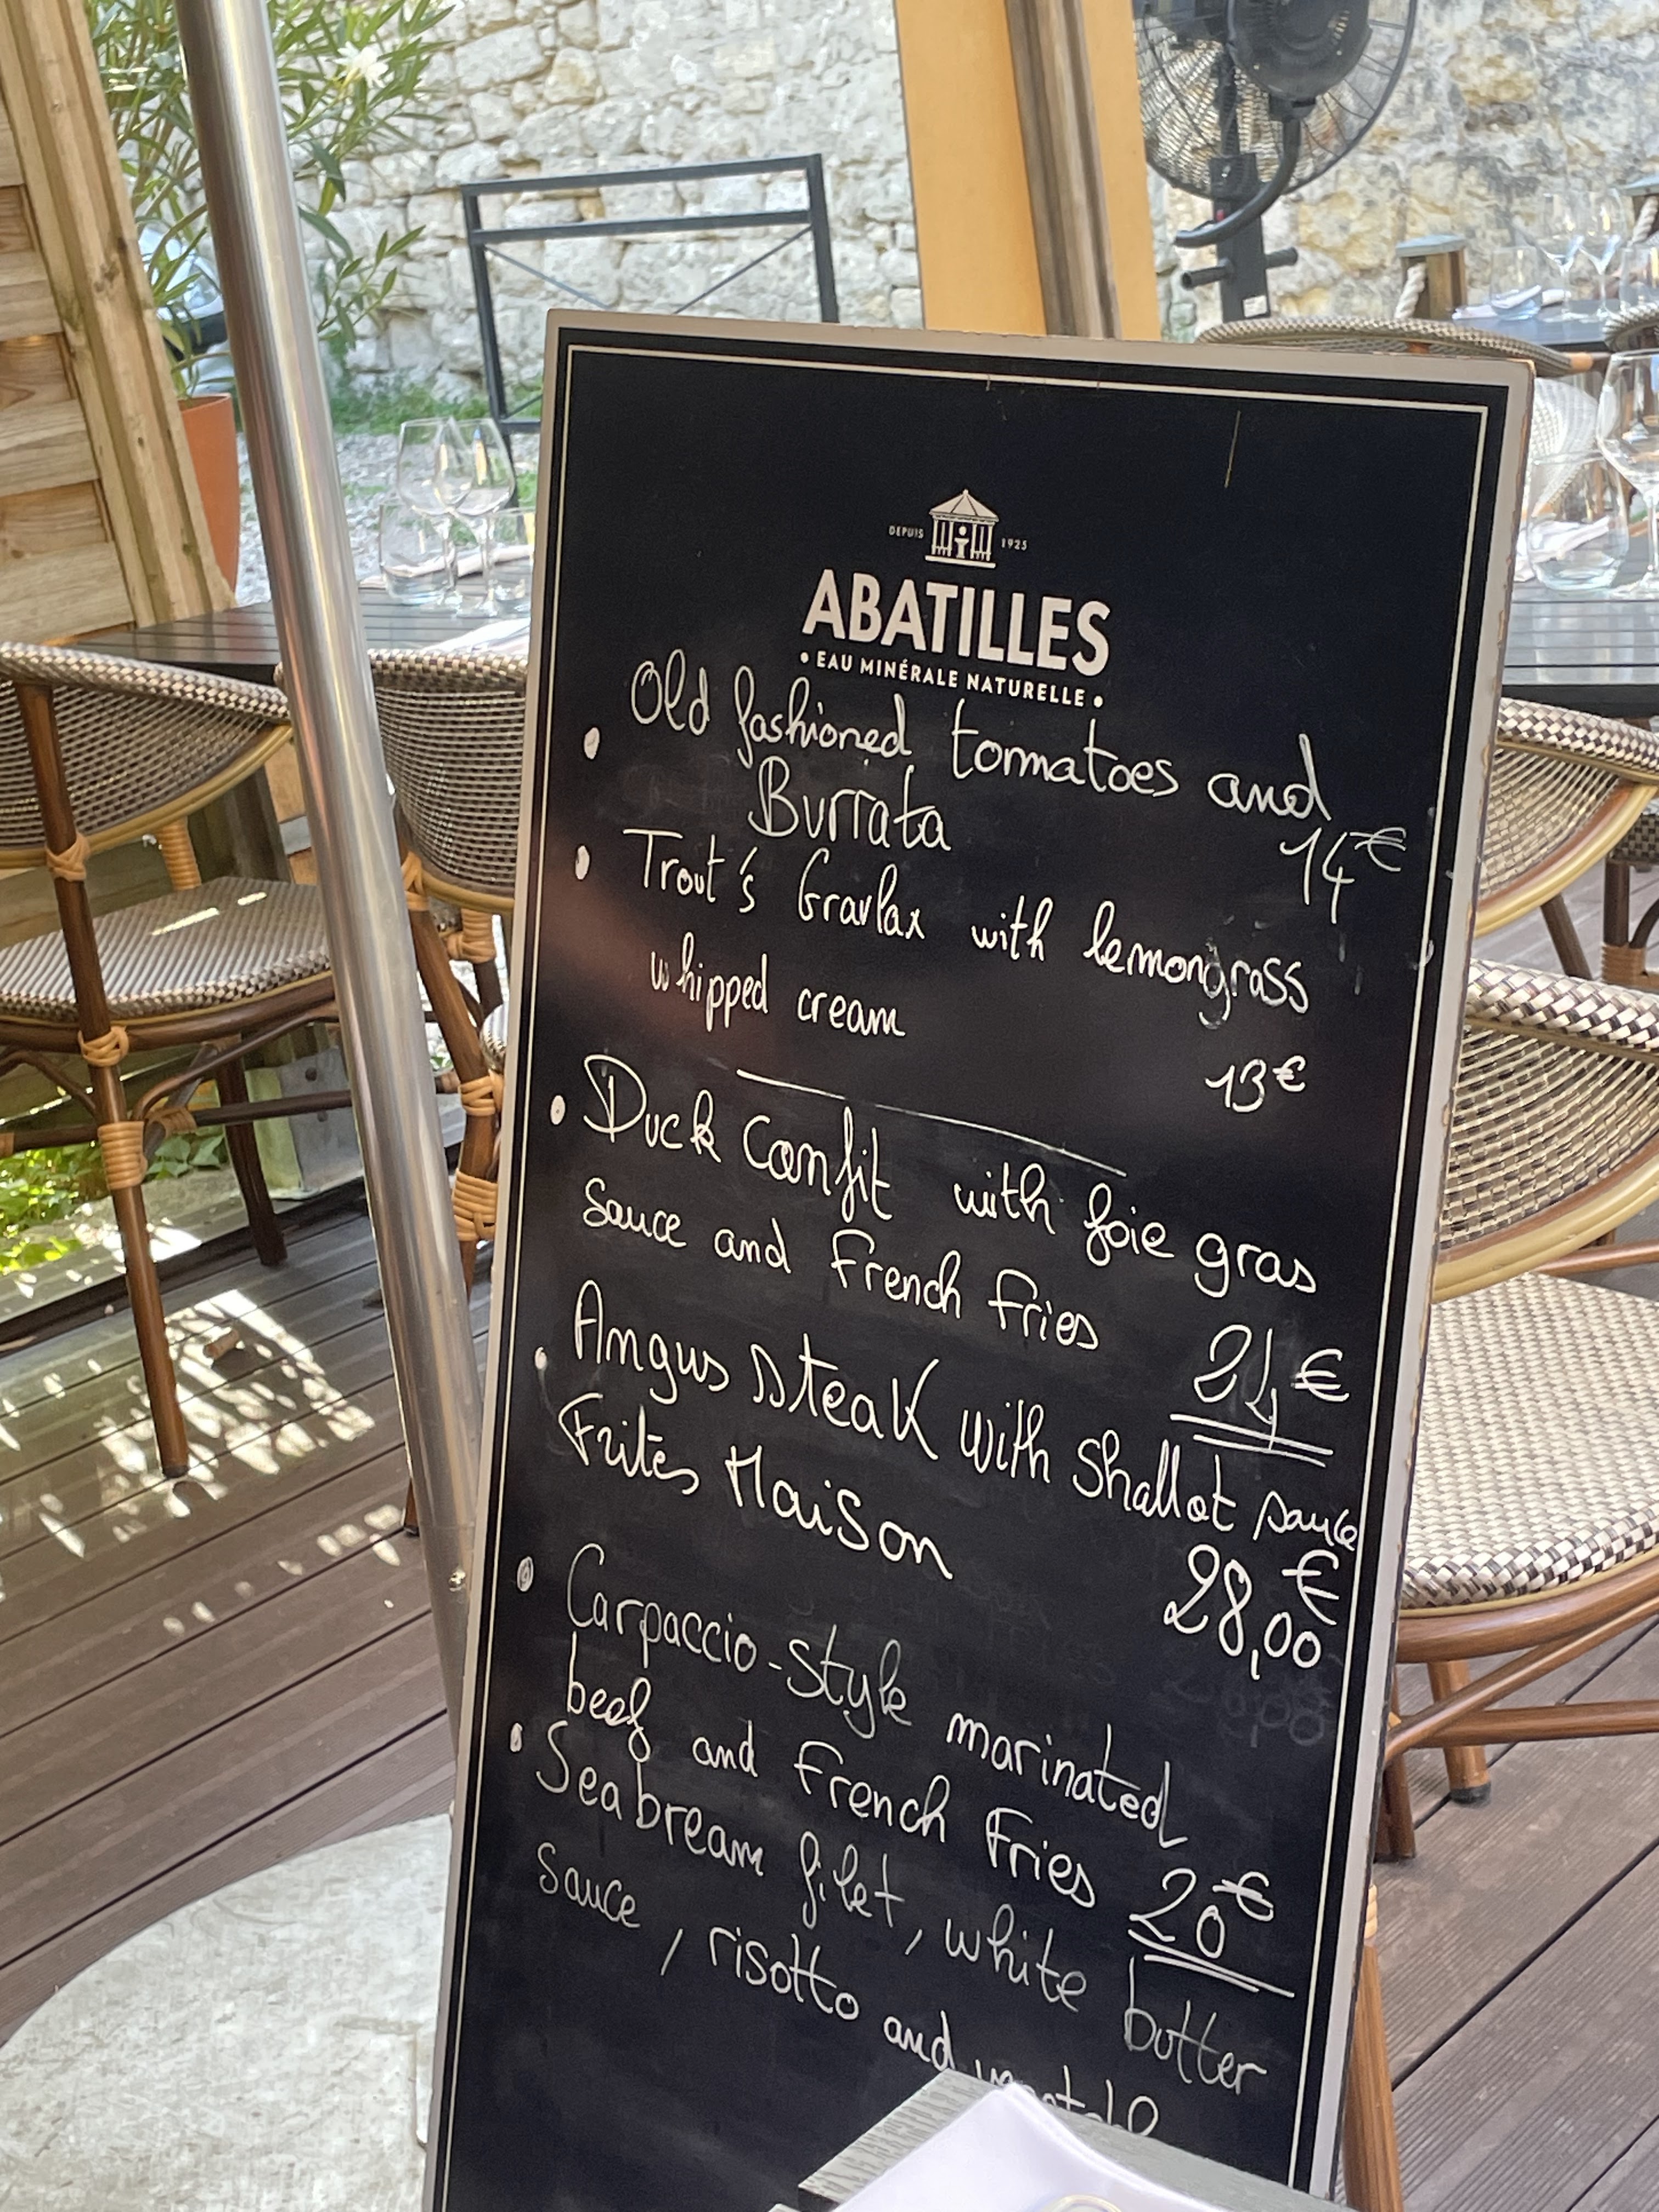 DEPUIS 1925
ABATILLES
• EAU MINÉRALE NATURELLE •
• Old fashioned tomatoes and
Burrata 14€
• Trout's Gravlax with lemongrass
whipped cream
13€
• Duck Confit with foie gras
sauce and French Fries
24€
• Angus steak with Shallot sauce
Frites Maison
28,00€
• Carpaccio-Style marinated
beef and French Fries 20€
• Seabream filet, white butter
sauce, risotto and